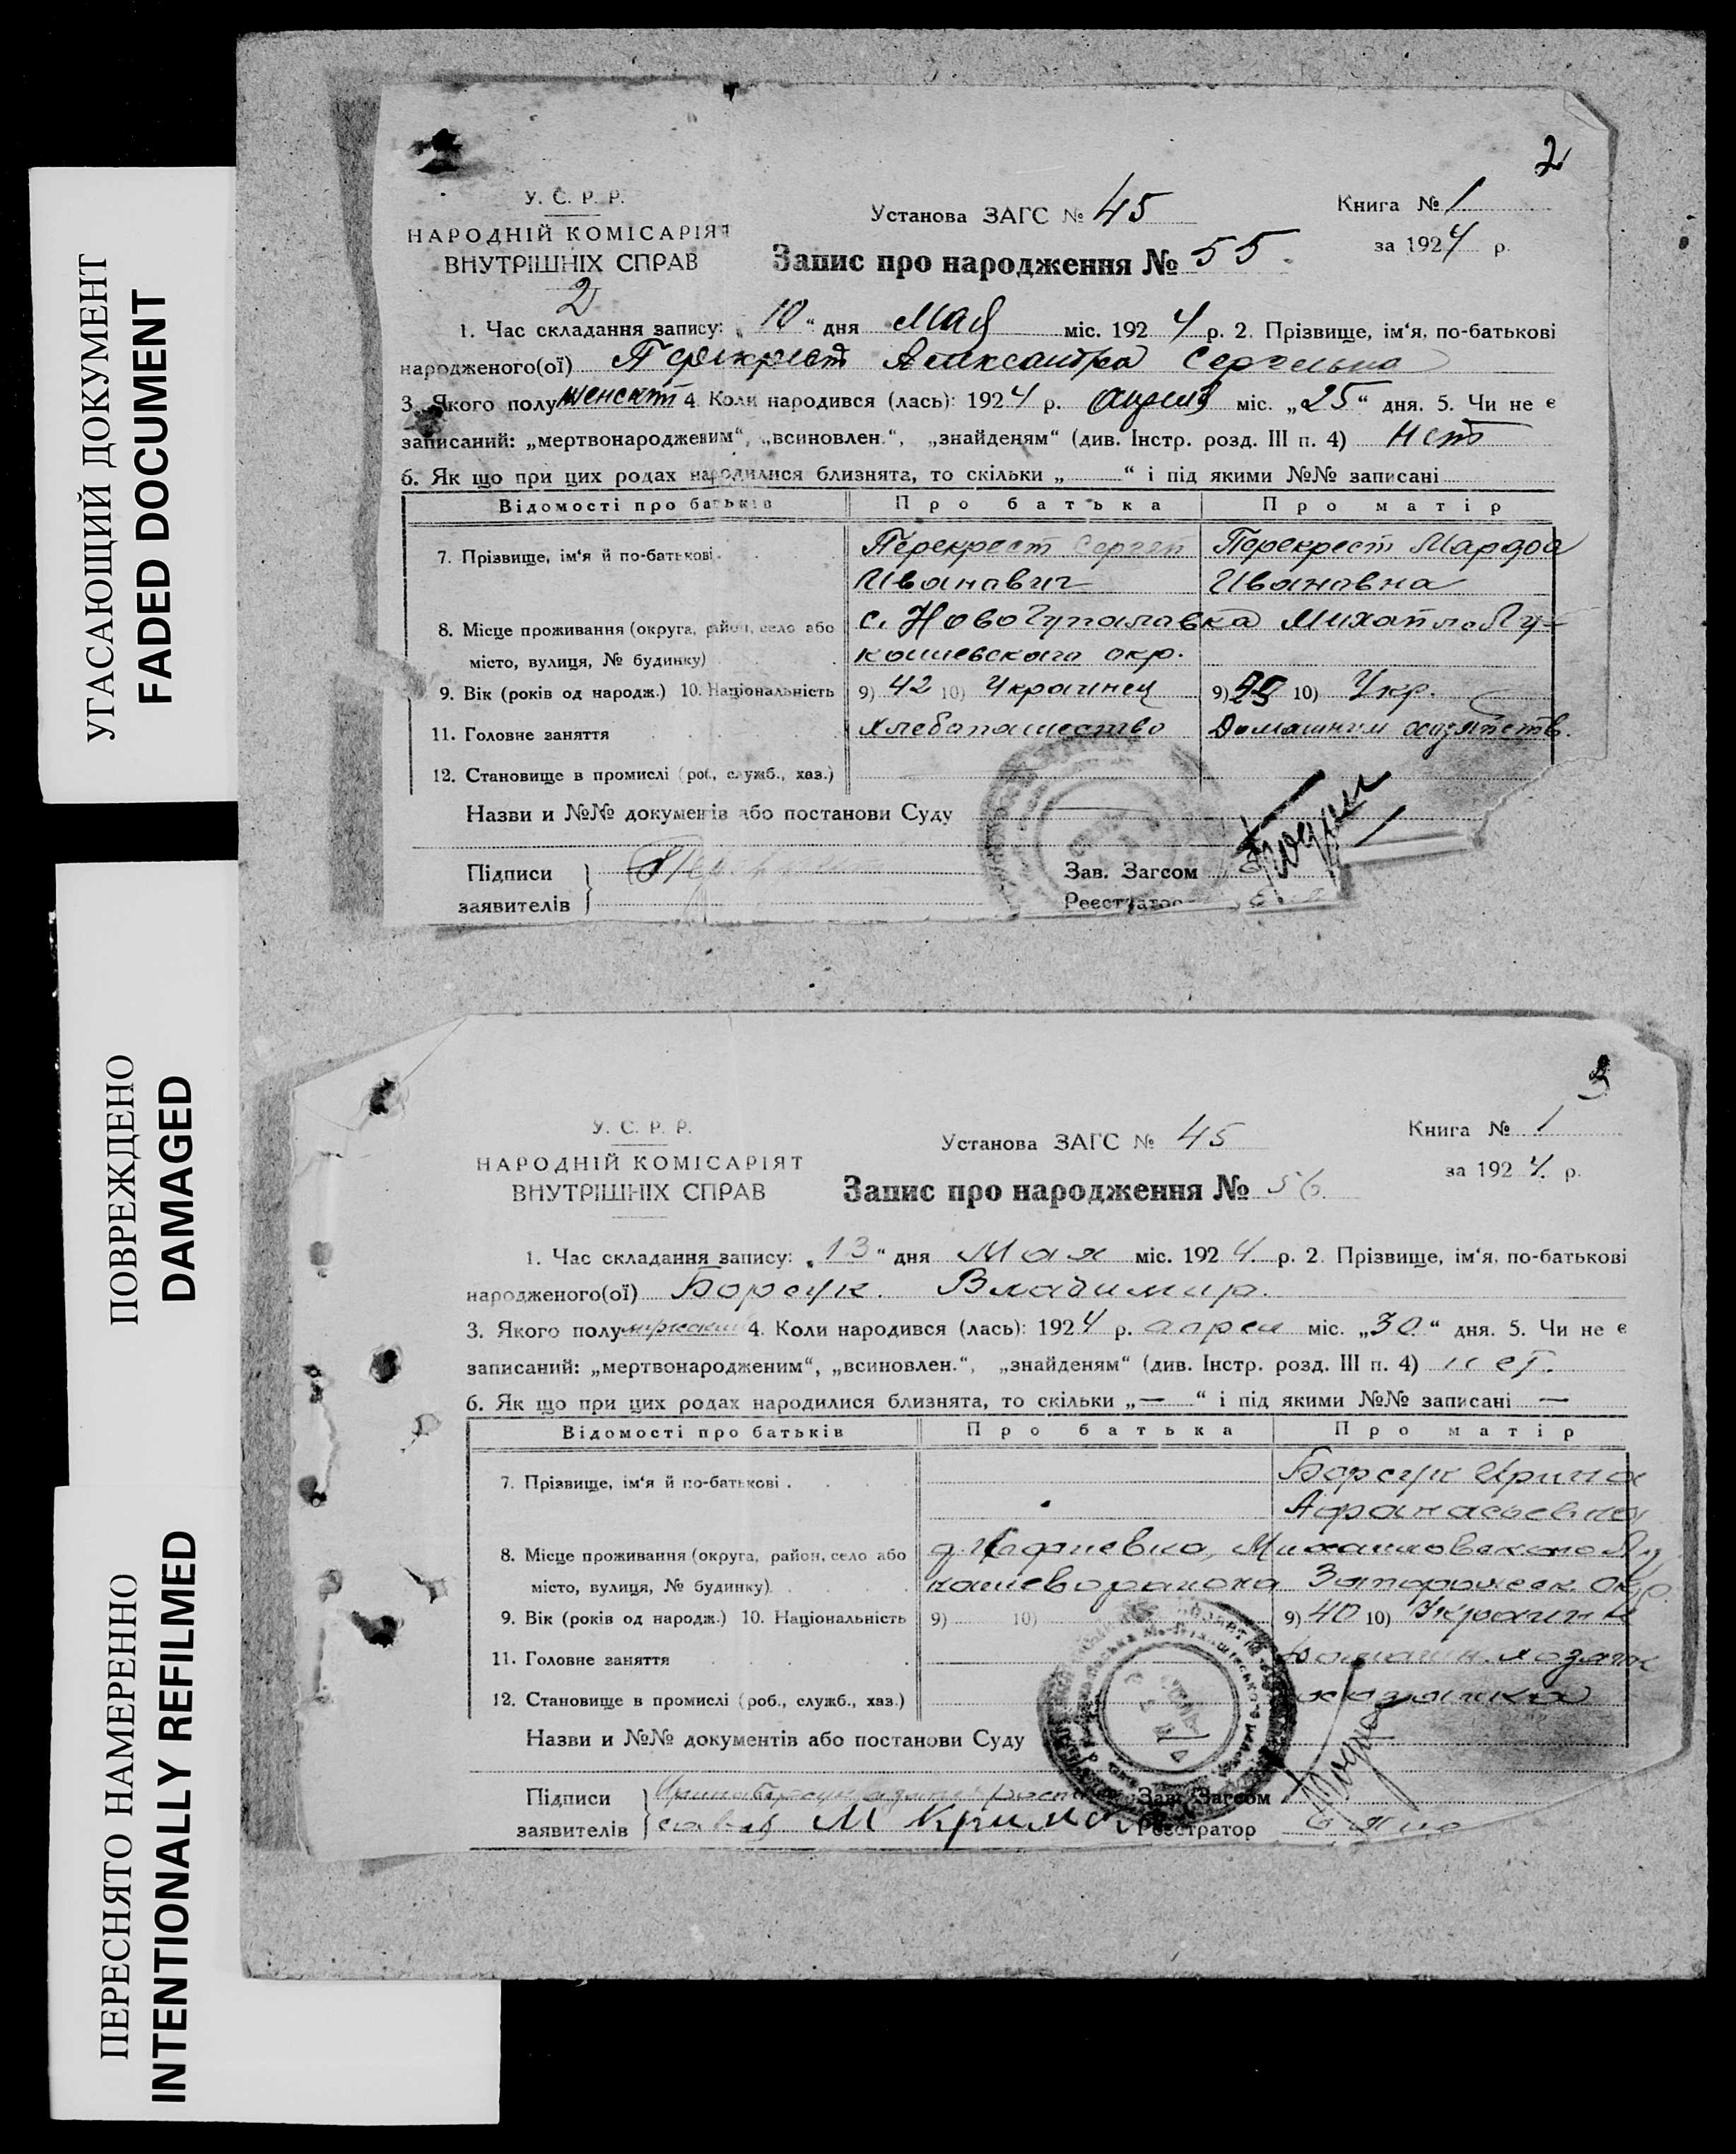 УГАСАЮЩИЙ ДОКУМЕНТ
FADED DOCUMENT
ПОВРЕЖДЕНО
DAMAGED
ПЕРЕСНЯТО НАМЕРЕННО
INTENTIONALLY REFILMED
2
У. С. Р. Р.
НАРОДНІЙ КОМІСАРІЯТ
ВНУТРІШНІХ СПРАВ
2
Установа ЗАГС № 45
Запис про народження № 55
Книга № 1
за 1924 р.
1. Час складання запису: „10“ дня Мая міс. 1924 р. 2. Прізвище, ім‘я, по-батькові
народженого(ої) Перекрест Александра Сергеевна
3. Якого полу женскит 4 Коли народився (лась): 1924 р. апреля міс. „25“ дня. 5. Чи не є
записаний: „мертвонародженим“, „всиновлен.“, „знайденям“ (див. Інстр. розд. III п. 4) Нет
6. Як що при цих родах народилися близнята, то скільки „ “ і під якими №№ записані
Відомості про батьків Про батька Про матір
7. Прізвище, ім‘я й по-батькові Перекрест Сергей Перекрест Марфа
Иванавич Иванавна
8. Місце проживання (округа, район, село або с. Ново Гупалавка Михайло Лу-
місто, вулиця, № будинку) кашевскага окр.
9. Вік (років од народж.) 10. Національність 9) 42 10) Украинец 9) 10) Укр.
11. Головне заняття Хлебапашество Домашним
12. Становище в промислі (роб., служб., хаз.)
Назви и №№ документів або постанови Суду
Підписи
заявителів
Зав. Загсом
Реєстратор
3
У. С. Р. Р.
НАРОДНІЙ КОМІСАРІЯТ
ВНУТРІШНІХ СПРАВ
Установа ЗАГС № 45
Запис про народження № 56
Книга № 1
за 1924 р.
1. Час складання запису: „13“ дня Мая міс. 1924 р. 2. Прізвище, ім‘я, по-батькові
народженого(ої) Борсук. Владимир.
3. Якого полу 4. Коли народився (лась): 1924 р. апрел міс. „30“ дня. 5. Чи не є
записаний: „мертвонародженим“, „всиновлен.“, „знайденям“ (див. Інстр. розд. III п. 4) нет.
6. Як що при цих родах народилися близнята, то скільки „—“ і під якими №№ записані —
Відомості про батьків Про батька Про матір
7. Прізвище, ім‘я й по-батькові . Борсук Ирина
Афанасьевна
8. Місце проживання (округа, район, село або Михайловскаго Лу
місто, вулиця, № будинку) кашево района Запорожск. Окр.
9. Вік (років од народж.) 10. Національність 9) 10) 9) 40 10)
11. Головне заняття
12. Становище в промислі (роб., служб., хаз.)
Назви и №№ документів або постанови Суду
Підписи
заявителів
Зав. Загсом
Реєстратор